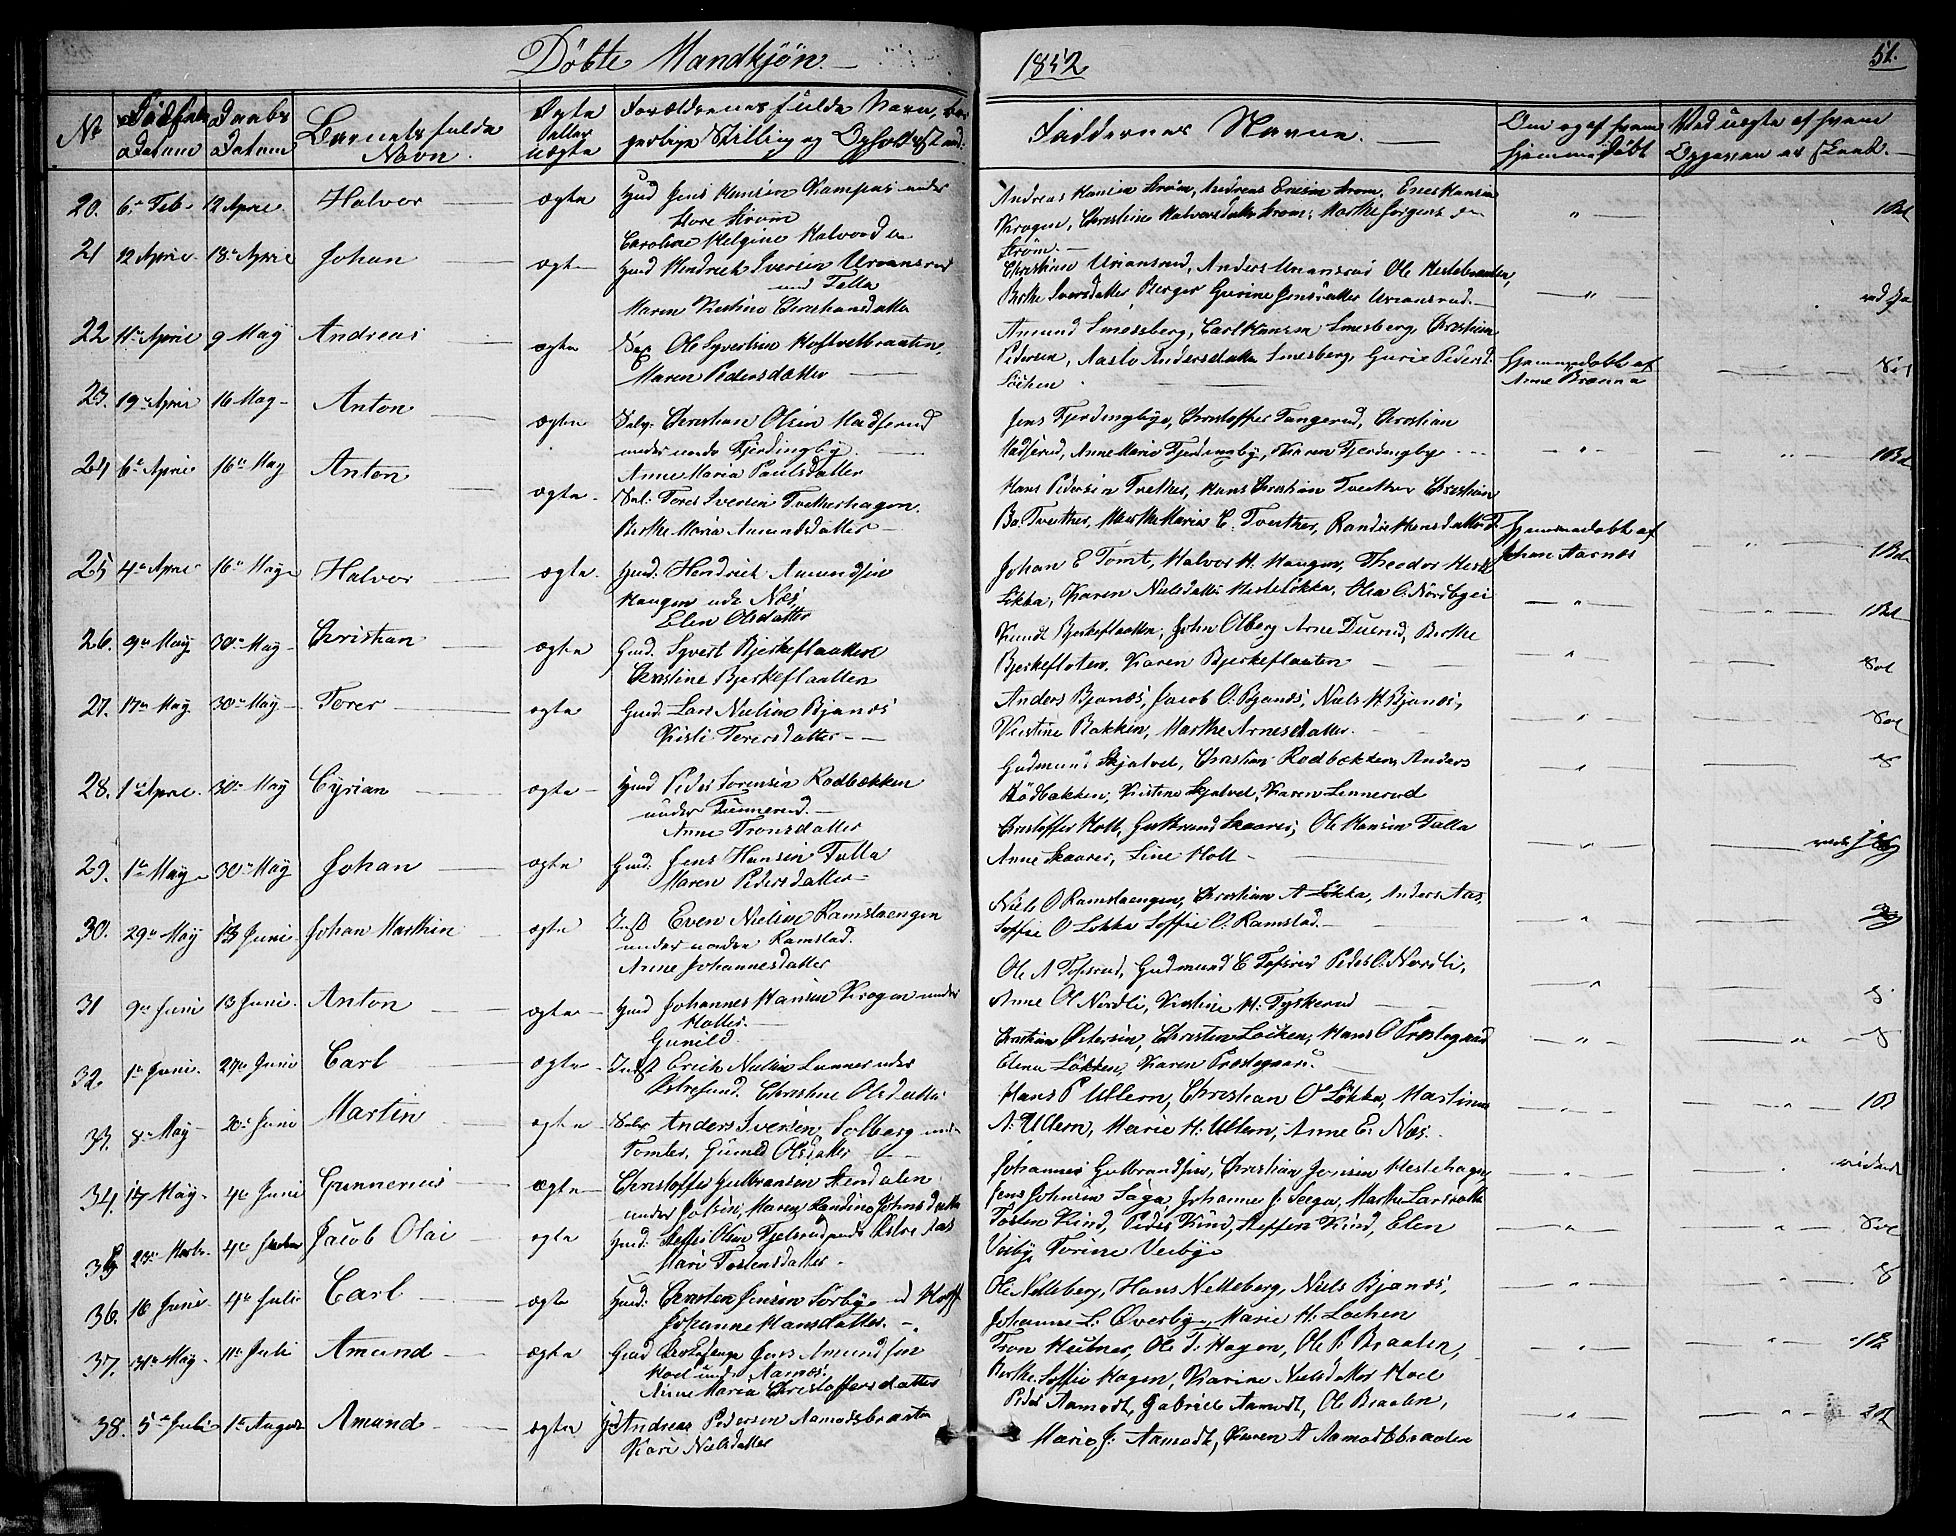 Döbte Mandkjøn. 1852 51.
No Fødsels Datum Daabs Datum Barnets fulde Navn. Ægte eller uægte Forældrenes fulde Navn, bor
gerlige Stilling og Opholdsted. Faddernes Navne. Om og af hvem hjemmedöbt Ved uægte af hvem
20. 6te Feb. 12 April. Halvor ægte Gmd Jens Hansen Kampas under
Store Strøm
Caroline Helgine Halvorsd
Andreas Hansen Strøm, Andreas Ericsen Strøm,
Krogen, Christine Halvorsdatter Strøm, Marthe Jørgens
Strøm.
21 12 April. 18 April Johan ægte Gmd Hendrich Iversen Uransrud
und Falla
Maren Kistine Christiansdatter
Christian Uransrud, Anders Uransrud Ole Hestebraaten,
Berthe Iversdatter Berger Gurine Jensdatter Uransrud.
22 11te April 9 May Andreas ægte Ole Syvertsen Hoftvetbraaten,
Maren Pedersdatter
Amund Smedsberg, Carl Hansen Smesberg, Christian
Pedersen, Aaslo Andersdatter Smesberg, Gurie Pedersd.
Löchen
Hjemmedøbt af
Anne Brænna
23. 19 April 16 May Anton ægte Selv: Christian Olsen Hadserud
under nedr Fjerdingby.
Anne Maria Paulsdatter
Jens Fjerdingbye, Christoffer Tangerud, Christian
Hadserud, Anne Marie Fjerdingby, Karen Fjerdingbye
24 6te April 16te May Anton ægte Sel: Tores Iversen Tvetterhagen.
Berthe Maria Amundsdatter
Hans Pedersen Tvether, Hans Christian Tvether Christian
Bo Tvether, Marthe Marie E. Tvether, Randie Hansdatter
Hjemmedøbt af
Johan Aarnæs
25 4de April 16de May Halvor ægte Gmd. Hendrich Amundsen
Haugen ude Næs,
Elen Olsdatter
Johan E Tomt, Halvor H. Haugen, Theodor Heste
Løkka, Karen Nielsdatter Hesteløkka, Olea O. Nordbyei
26. 9de May 30te May Christian ægte Gmd. Syvert Bjerkeflaatten
Christine Bjerkeflaatten
Knudt Bjerkeflaatten, John Olberg Arne Duerud, Berthe
Bjerkefloten, Karen Bjerkeflaaten
27. 17de May 30te May Torer ægte Gmd. Lars Nielsen Bjanæs
Kisti Torersdatter
Anders Bjanæs, Jacob O. Bjanæs, Niels H Bjanæs,
Kistine Bakken, Marthe Arnesdatter
28. 1te April. 30te May Cyrian ægte Gmd Peder Sørensen Rødbækken
under Tünnerud.
Anne Tronsdatter
Gudmund Skjatvet, Christian Rodbækken, Anders
Rødbækken, Kistine Skjatvet, Karen Linnerud
29. 1te May 30te May Johan ægte Gmd: Jens Hansen Falla
Maren Pedersdatter
Christoffer Holt, Gulbrand Skaarer, Ole Hansen Falla
Anne Skaarer, Line Holt
30. 29de May 13 Juni Johan Marthin ægte Inds Even Nielsen Ramstaengen
under nordre Ramstad.
Anne Johannesdatter
Niels O Ramstaengen, Christian A Løkka, Anders Aas
Soffie O Løkka Soffie O. Ramstad.
31 9de Juni 13 Juni. Anton ægte Gmd Johannes Hansen Krogen under
Holter.
Gunild
Ole A Tofsrud, Gudmund C Tofsrud Peder O. Nordli,
Anne Ol Nordli, Kistine H. Tyskerud
32. 1te Juni. 27de Juni Carl ægte Inds Erich Nielsen Lunner under
Christine Olsdatter
Christian Petersen, Christen Løiken, Hans O Prestegaard
Elena Løkken, Karen Prestegaard.
33. 8de May 20de Juni Martin ægte Selv Anders Iversen Solberg
Tomter, Gunild Olsdatter
Hans P Ullern, Christian O Løkka, Martinus
N. Ullern, Marie H. Ullern, Anne E. Næs.
34. 17 May 4de Juni Gunnerius ægte Christoffer Gulbransen Stendalen
under Jølsen, Maren Randine Johnsdatter
Johannes Gulbrandsen, Christian Jensen Hestehagen
Jens Johnsen Saga Johanne J. Saga, Marthe Larsdatter
35 Jacob Olai ægte Gmd. Steffen Olsen Fjelsrud
Mari Tostensdatter
Tosten Kind, Peder Kind, Steffen Kind, Elen
Veiby Torine Veibye
36. 16 Juni 4de Juli Carl ægte Gmd: Christen Jensen Sørbye
Johanne Hansdatter.
Ole Netteberg, Hans Netteberg, Niels Bjanæs,
Johanne L. Øverbye, Marie H. Lochen
37. 31te May 11te Juli Amund ægte Gmd Jens Amundsen
Hoel under Aamot.
Anne Maria Christoffersdatter
Tron Heitner, Ole T. Hagen, Ole P. Braaten,
Berthe Soffie Hagen, Karine Nielsdatter Hoel
38. 5te Juli 1te August Amund ægte Andreas Pedersen Aamodsbraaten
Kari Nielsdatter
Peder Aamodt, Gabriel Aamodt, Ole Braaten,
Marie J. Aamodt, Karen A Aamodtbraaten